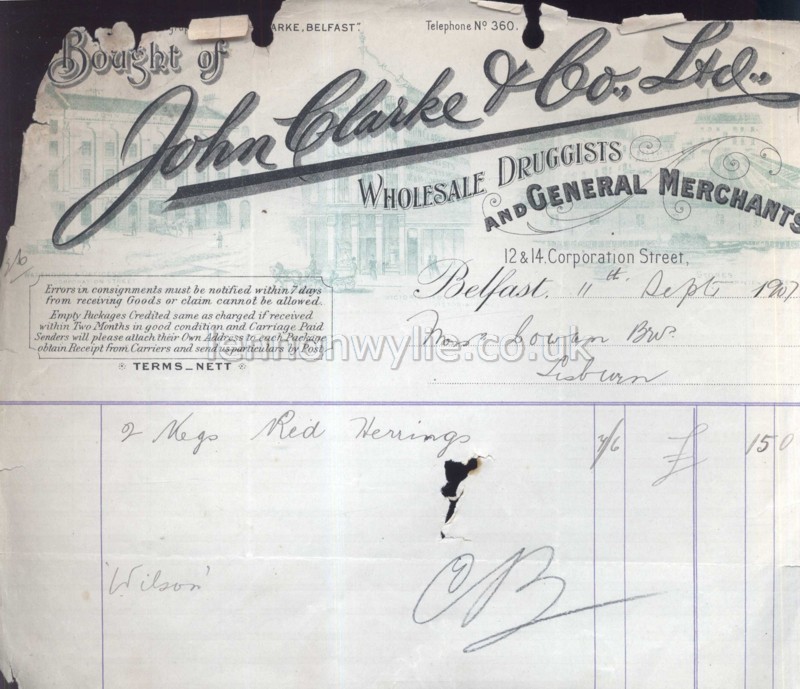 ARKE, BELFAST".
Telephone No 360.
Bought of
John Clarke & Co., Ltd.,
WHOLESALE DRUGGISTS
AND GENERAL MERCHANTS
12 & 14, Corporation Street,
Belfast, 11th Sept 1907
Messrs Cowan Bros
Lisburn
Errors in consignments must be notified within 7 days
from receiving Goods or claim cannot be allowed.
Empty Packages Credited same as charged if received
within Two Months in good condition and Carriage Paid
Senders will please attach their Own Address to each Package
obtain Receipt from Carriers and send us particulars by Post
TERMS_NETT
lennonwylie.co.uk
2 Kegs Red Herrings 7/6 £ 15 0
'Wilson'
CB